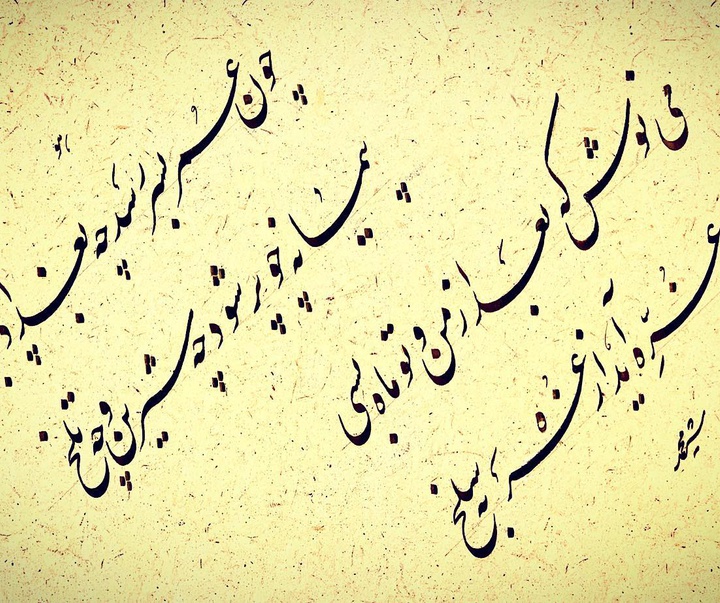 هو
چون عمر بسر رسد چه بغداد
پیمانه چو پر شود چه شیرین و چه تلخ
می نوش که بعد از من و تو ماه بسی
غره آید از غره به سلخ